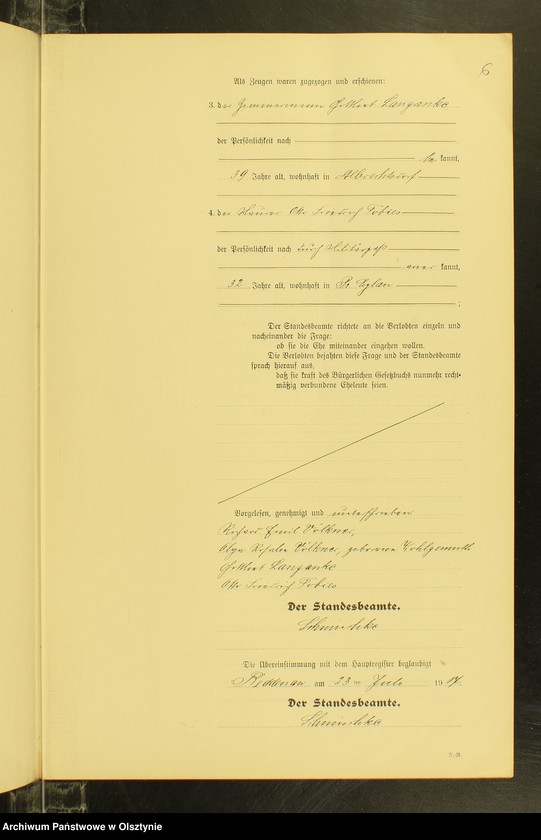 6
Als Zeugen waren zugezogen und erschienen:
3. der Zimmermann Gottlieb Langanke
der Persönlichkeit nach
be kannt,
39 Jahre alt, wohnhaft in Albrechtsdorf
4. der Otto Friedrich Tobies
der Persönlichkeit nach durch Militärpaß
aner kannt,
32 Jahre alt, wohnhaft in Pr. Eylau
;
Der Standesbeamte richtete an die Verlobten einzeln und
nacheinander die Frage:
ob sie die Ehe miteinander eingehen wollen.
Die Verlobten bejahten diese Frage und der Standesbeamte
sprach hierauf aus,
daß sie kraft des Bürgerlichen Gesetzbuchs nunmehr recht-
mäßig verbundene Eheleute seien.
Vorgelesen, genehmigt und unterschrieben
Richard Emil Völkner,
Olga Rosalie Völkner, geborene Wohlgemuth
Gottlieb Langanke
Otto Friedrich Tobies
Der Standesbeamte.
Die Übereinstimmung mit dem Hauptregister beglaubigt
am 23 ten Juli 19 17.
Der Standesbeamte.
Archiwum Państwowe w Olsztynie